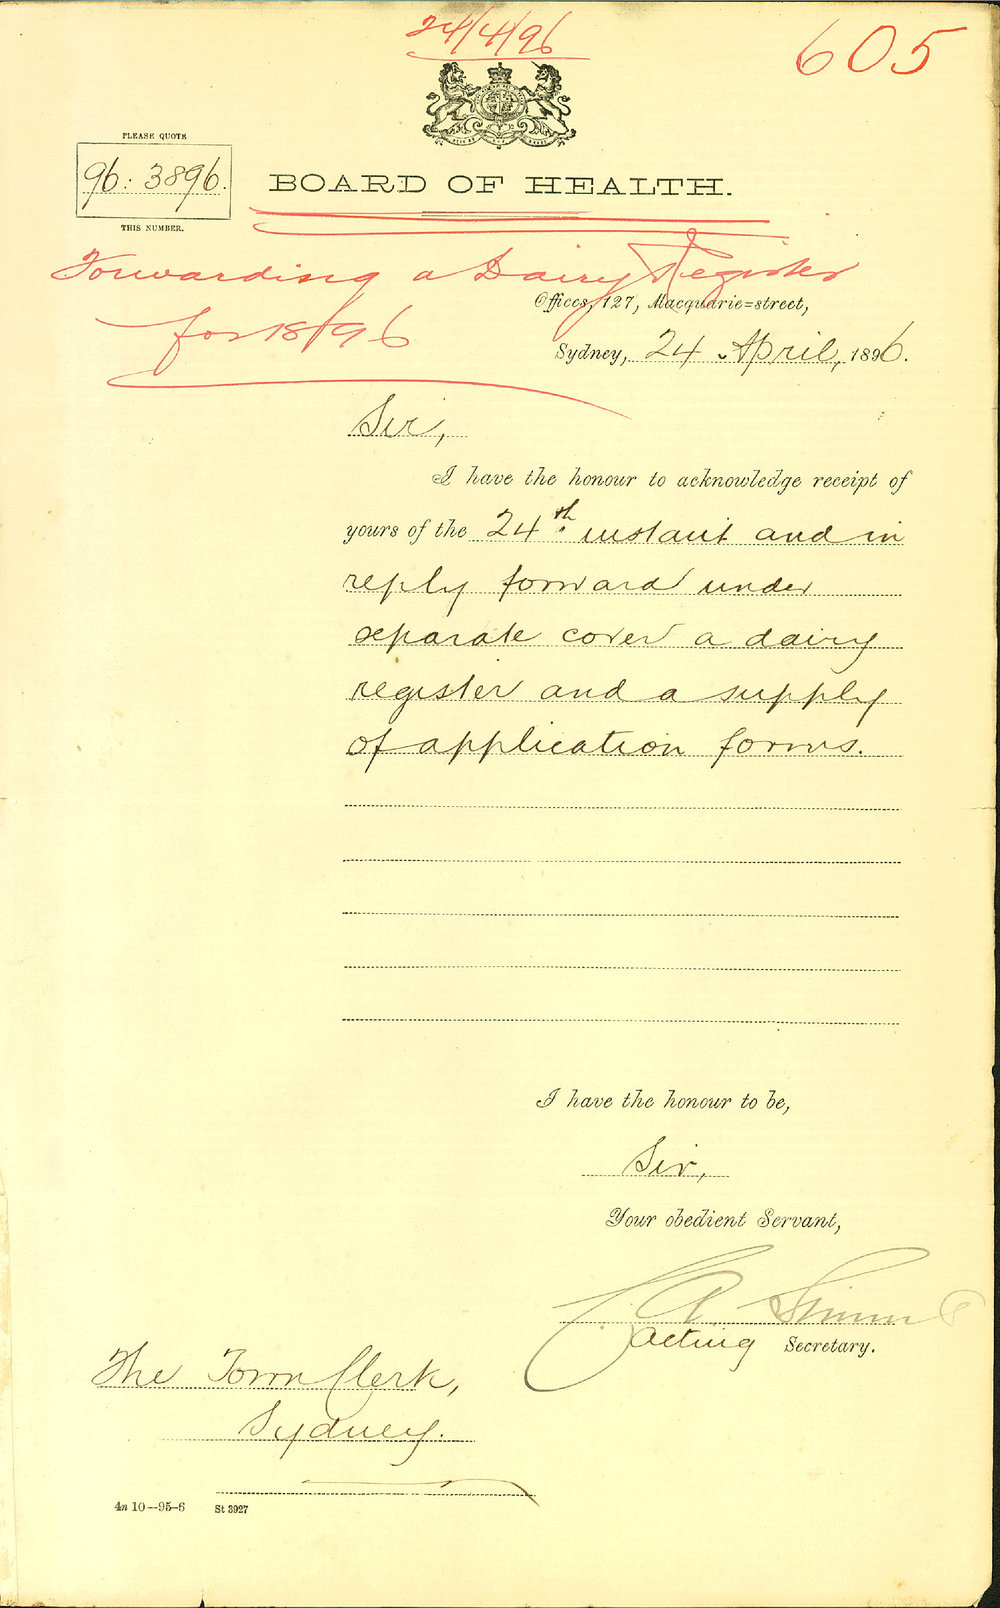 24/4/96
605
PLEASE QUOTE
96.3896.
THIS NUMBER.
BOARD OF HEALTH.
Forwarding a Dairy Register
for 18/96
Offices, 127, Macquarie=street,
Sydney, 24 April, 1896.
Sir,
I have the honour to acknowledge receipt of
yours of the 24th instant and in
reply forward under
separate cover a dairy
register and a supply
of application forms.
I have the honour to be,
Sir,
Your obedient Servant,
Acting Secretary.
The Town Clerk,
Sydney.
4n 10—95-6 St 3927